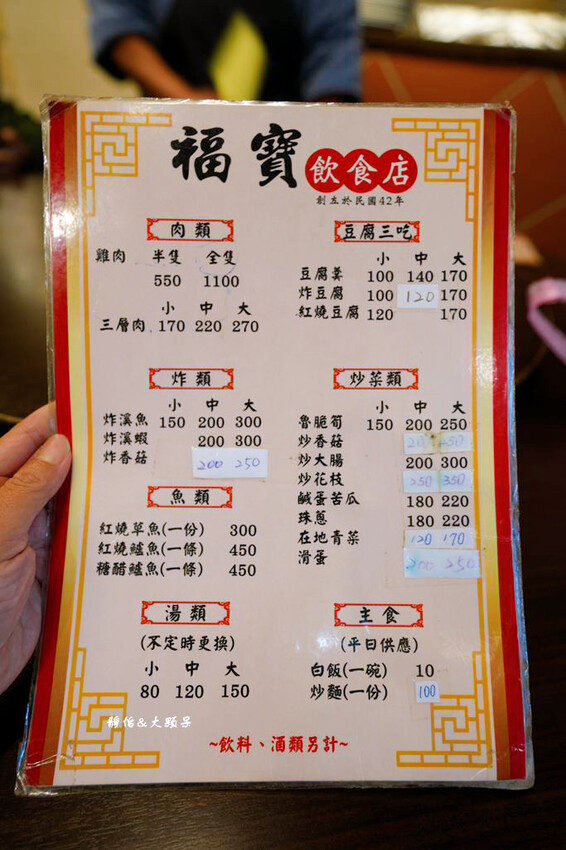 福寶飲食店
創立於民國42年
肉類
雞肉 半隻 全隻
550 1100
小 中 大
三層肉 170 220 270
豆腐三吃
小 中 大
豆腐羹 100 140 170
炸豆腐 100 120 170
紅燒豆腐 120 170
炸類
小 中 大
炸溪魚 150 200 300
炸溪蝦 200 300
炸香菇 200 250
炒菜類
小 中 大
魯脆筍 150 200 250
炒香菇
炒大腸 200 300
炒花枝 250 350
鹹蛋苦瓜 180 220
珠蔥 180 220
在地青菜 120 170
滑蛋 200 250
魚類
紅燒草魚(一份) 300
紅燒鱸魚(一條) 450
糖醋鱸魚(一條) 450
湯類
(不定時更換)
小 中 大
80 120 150
主食
(平日供應)
白飯(一碗) 10
炒麵(一份) 100
~飲料、酒類另計~